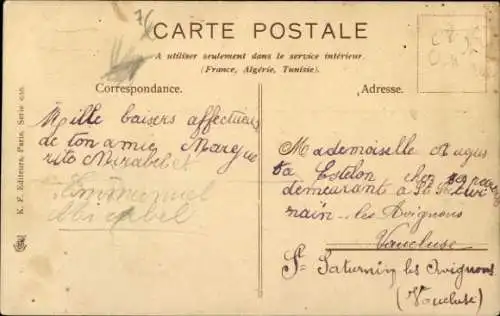 CARTE POSTALE
A utiliser seulement dans le service intérieur.
(France, Algérie, Tunisie).
Correspondance.
Adresse.
Mille baisers affectueux
de ton amie Margue
rite Mirabel
Emmanuel
Mirabel
Mademoiselle Augus
ta chez
demeurant à St
nain les Avignons
Vaucluse
St Saturnin les Avignons
(Vaucluse)
K. F. Editeurs, Paris, Serie